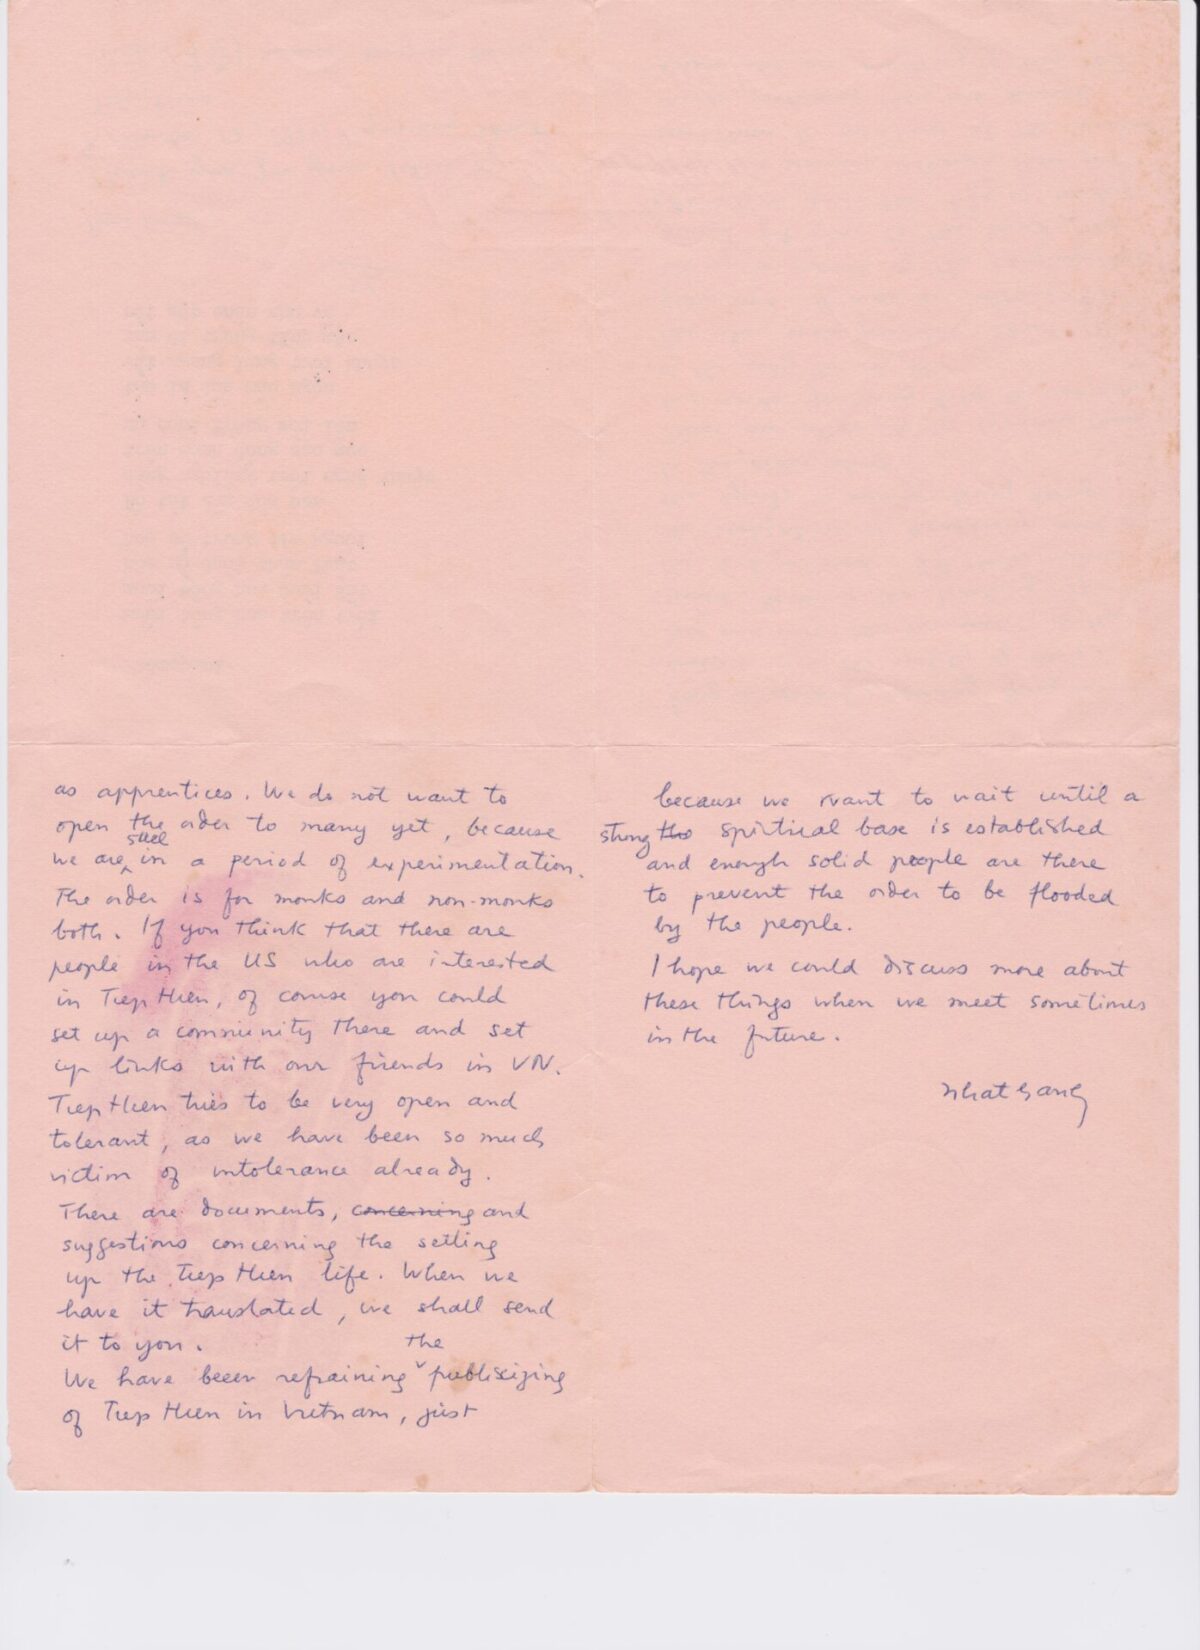 as apprentices. We do not want to
open the order to many yet, because
still
we are in a period of experimentation.
The order is for monks and non-monks
both. If you think that there are
people in the US who are interested
in Tiep Hien, of course you could
set up a community there and set
up links with our friends in VN.
Tiep Hien tries to be very open and
tolerant, as we have been so much
victim of intolerance already.
There are documents, concerning and
suggestions concerning the setting
up the Tiep Hien life. When we
have it translated, we shall send
it to you.
the
We have been refraining publicizing
of Tiep Hien in Vietnam, just
because we want to wait until a
strong spiritual base is established
and enough solid people are there
to prevent the order to be flooded
by the people.
I hope we could discuss more about
these things when we meet sometimes
in the future.